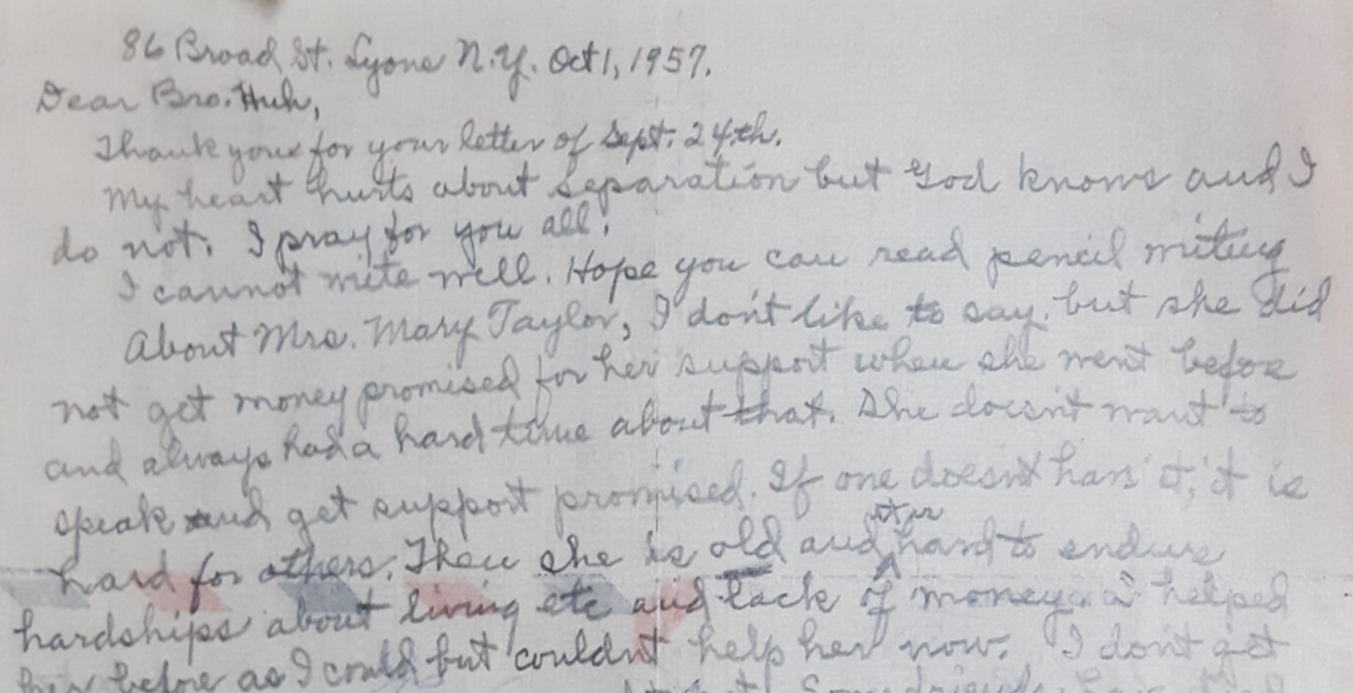 86 Broad St. Lyons N.Y. Oct 1, 1957.
Dear Bro. Huh,
Thank you for your letter of Sept. 24th.
My heart hurts about separation but God knows and I
do not. I pray for you all!
I cannot write well. Hope you can read pencil writing
About Mrs. Mary Taylor, I don't like to say, but she did
not get money promised for her support when she went before
and always had a hard time about that. She doesn't want to
speak and get support promised. If one doesn't have it, it is
hard for others. Then she is old and it is hard to endure
hardships about living etc and lack of money. I helped
her before as I could but couldn't help her now. I don't get
Some friends